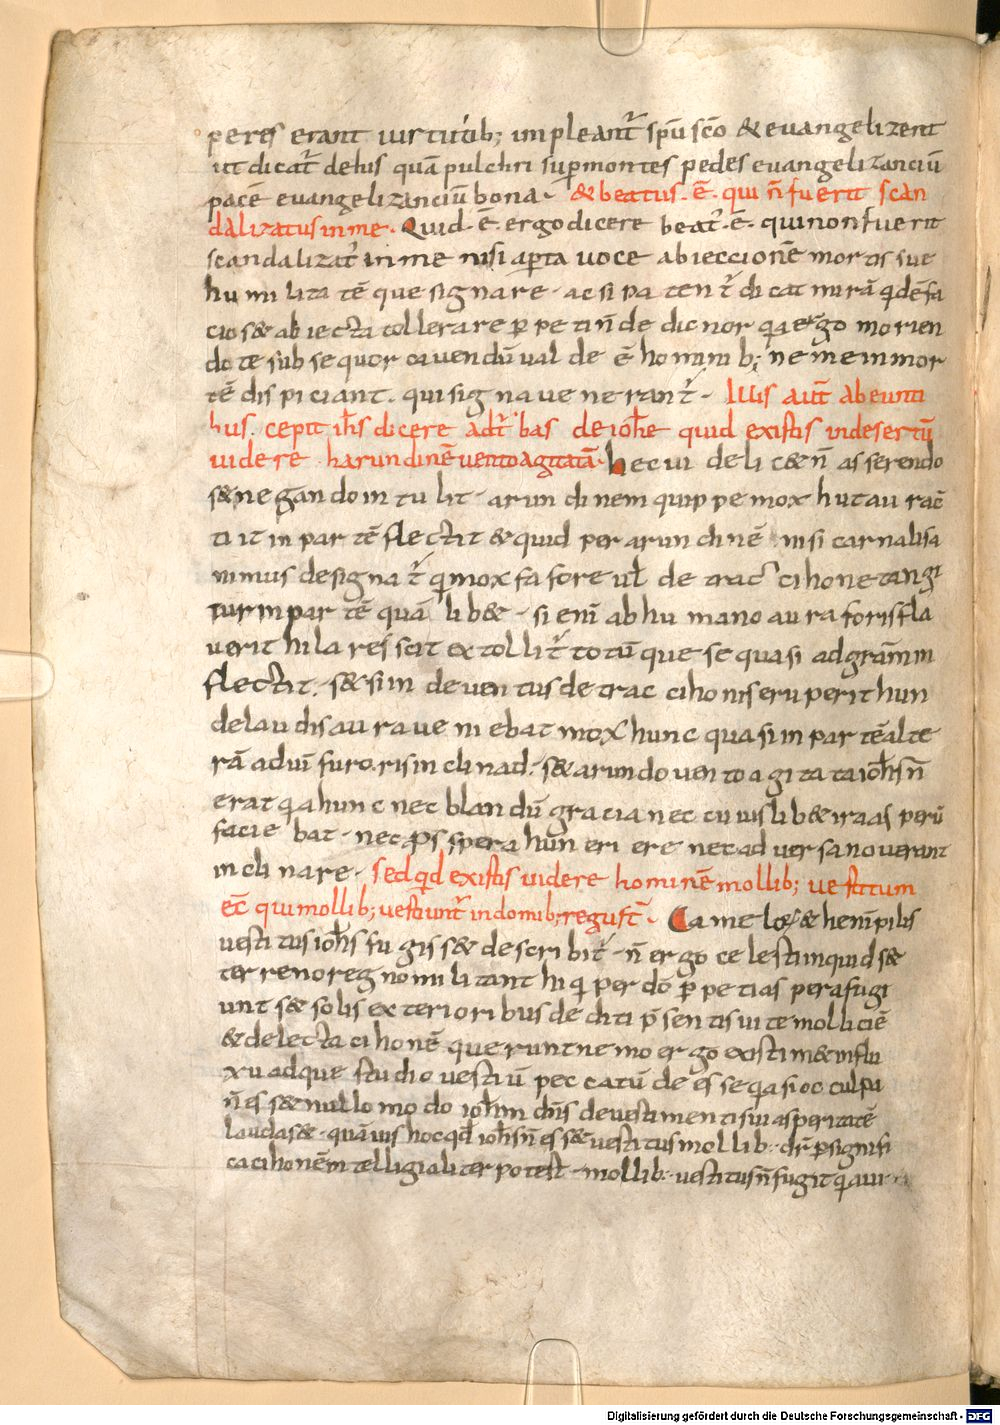 peres erant uirtutib; impleant᷑ sp̄u sc̄o & evangelizent
ut dicat᷑ dehis quā pulchri suꝑmontes pedes evangelizanciū
pacē evangelizanciū bona. & beatus. ē. qui n̄ fuerit scan
dalizatus in me. Quid. ē. ergo dicere beat᷑. ē. qui non fuerit
scandalizat᷑ in me nisi aꝑta uoce abieccionē mortis sue
humilitatē que signare. ac si patent᷑ dicat mirā qdē fa
cio s& abiecta tollerare ꝑpeti n̄ de dicnor qa ergo morien
do te subsequor cavendū ualde ē hominib; ne mē in mor
tē dispiciant. qui signa uenerant᷑. Illis aut̄ abeunti
bus. cepit ih̄s dicere ad t᷑bas de ioh̄e quid existis in desertū
uidere harundinē vento agitatā. hec uidelic& n̄ asserendo
s& negando intulit. arundinem quippe mox hut aurae
tiit in partē flectit & quid per arundinē nisi carnalis a
nimus designat᷑ qi mox fa fore ul̄ detraccihone tangi
tur in partē quā lib&. si eni ab humano aura foris fla
verit hilarescit extollit᷑ totū que se quasi ad gram in
flectit. s& si inde uentus detraccihonis eruperit hun
de laudis aura veniebat mox hunc quasi in partē alte
rā ad uī furoris inclinad. s& arundo vento agitata ioh̄s n̄
erat qa hunc nec blandū gracia nec cuius lib& ira asperū
faciebat. nec ꝓspera hun eriere nec adversa noverant
inclinare. sed qd existis uidere hominē mollib; vestitum
ec̄ qui mollib; vestiunt᷑ in domib; regū st̄. Camelor& henī pilis
vestitus ioh̄s fugis s& describit᷑. n̄ ergo celesti inquid s&
terreno regno militant hi qi per dō ꝑpeti aspera fugi
unt s& solis exterioribus dediti p̄sentis uite molliciē
& delectacihonē querunt nemo ergo existim& in flu
xu adque studio vestiū peccatū deesse qasi oc culpa
n̄ ess& nullo modo ioh̄m dn̄s de vestimenti sui asperitatē
laudass&. quāuis hoc qd ioh̄s n̄ ess& vestitus mollib. dr̄ ꝑsignifi
cacihonē intelligi aliter potest. mollib. vestitus n̄ fugit qi aui